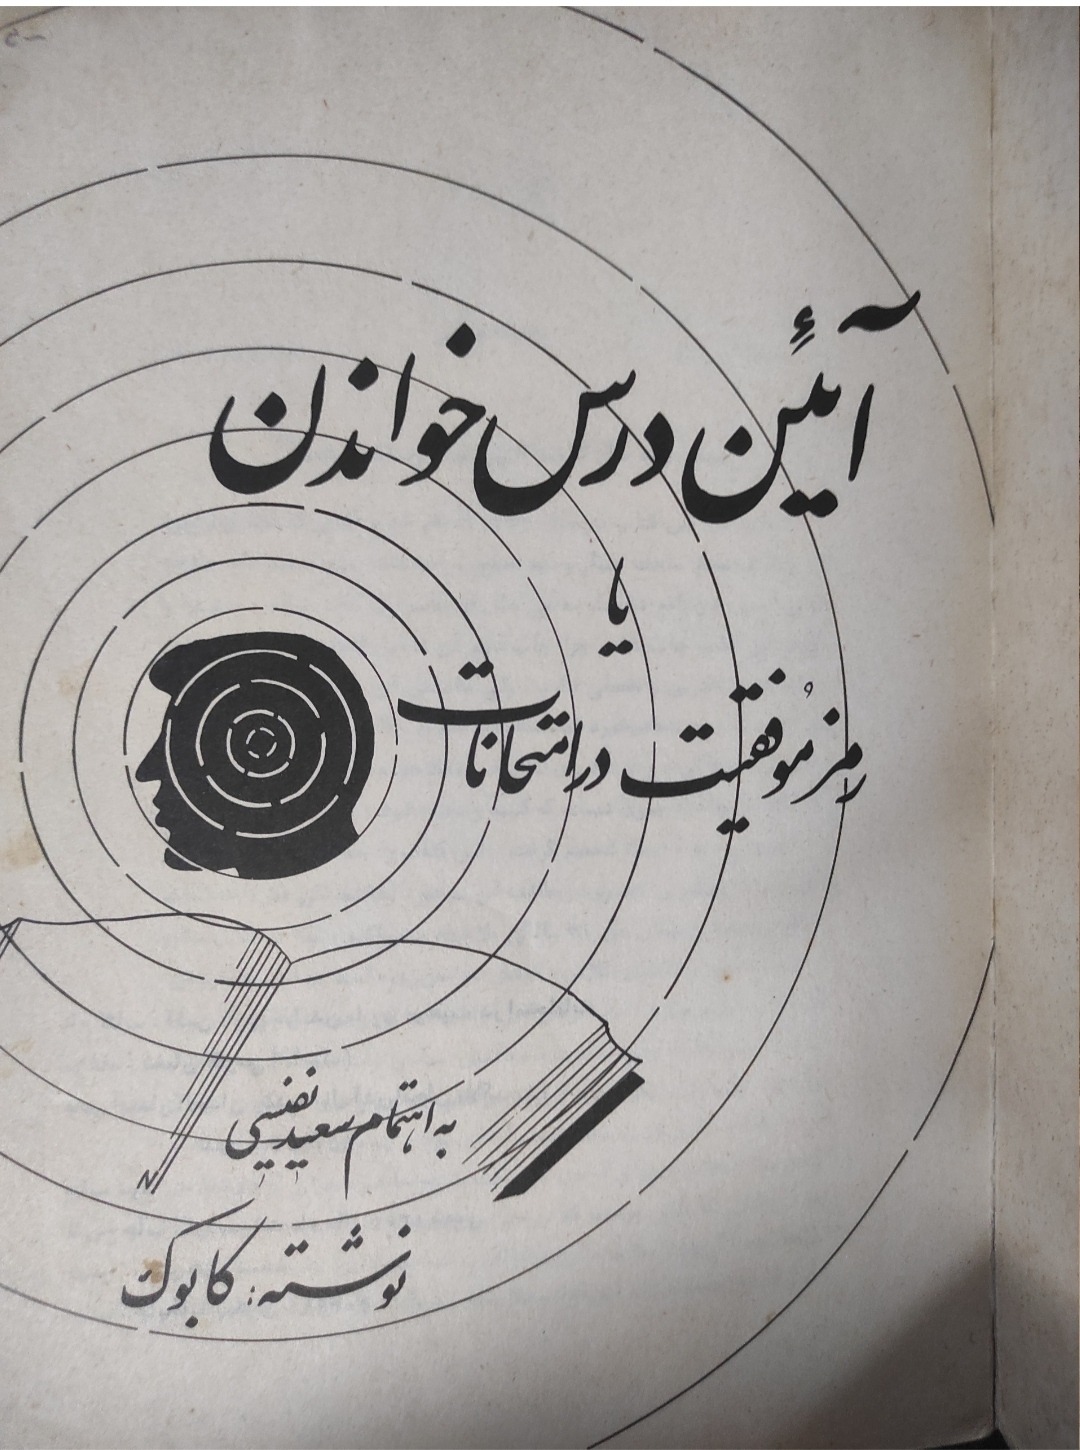 آئین درس خواندن
یا
رمز موفقیت در امتحانات
به اهتمام سعید نفیسی
نوشته: کابوک